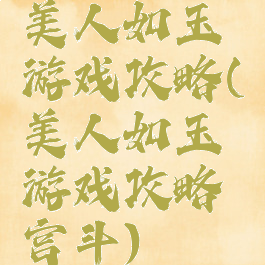 美人如玉
游戏攻略(
美人如玉
游戏攻略
宫斗)